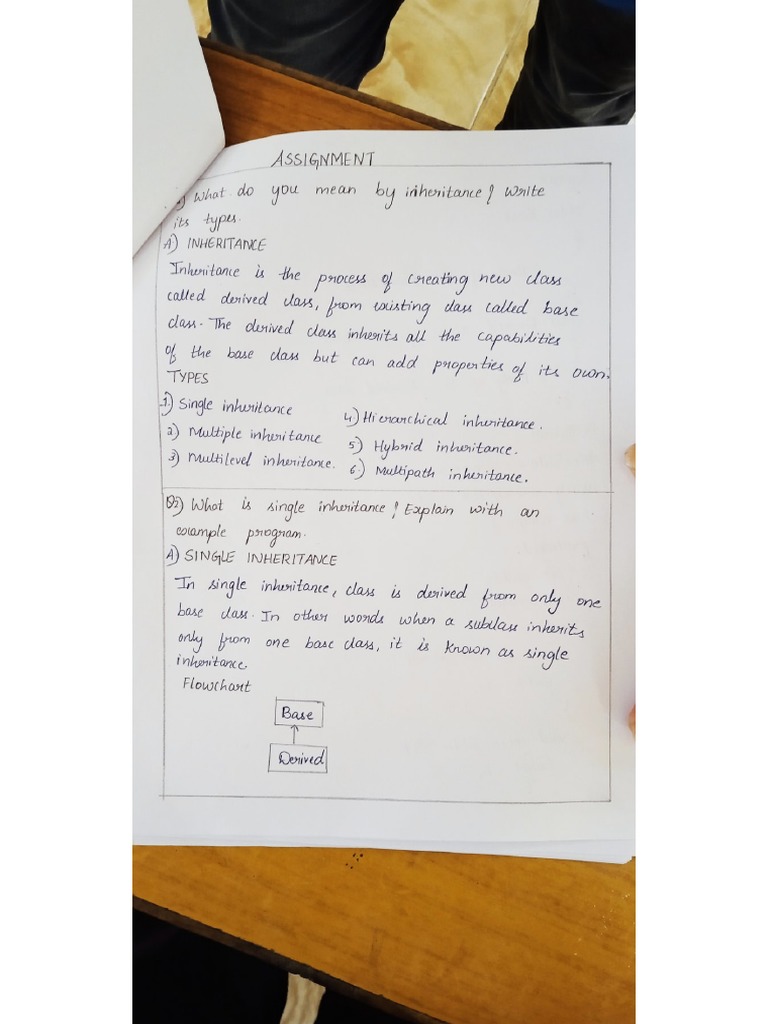 ASSIGNMENT
) What do you mean by inheritance? Write
its types.
A) INHERITANCE
Inheritance is the process of creating new class
called derived class, from existing class called base
class. The derived class inherits all the capabilities
of the base class but can add properties of its own.
TYPES
1) Single inheritance
2) Multiple inheritance
3) Multilevel inheritance.
4) Hierarchical inheritance.
5) Hybrid inheritance.
6) Multipath inheritance.
Q2) What is single inheritance? Explain with an
example program.
A) SINGLE INHERITANCE
In single inheritance, class is derived from only one
base class. In other words when a subclass inherits
only from one base class, it is known as single
inheritance.
Flowchart
Base
Derived